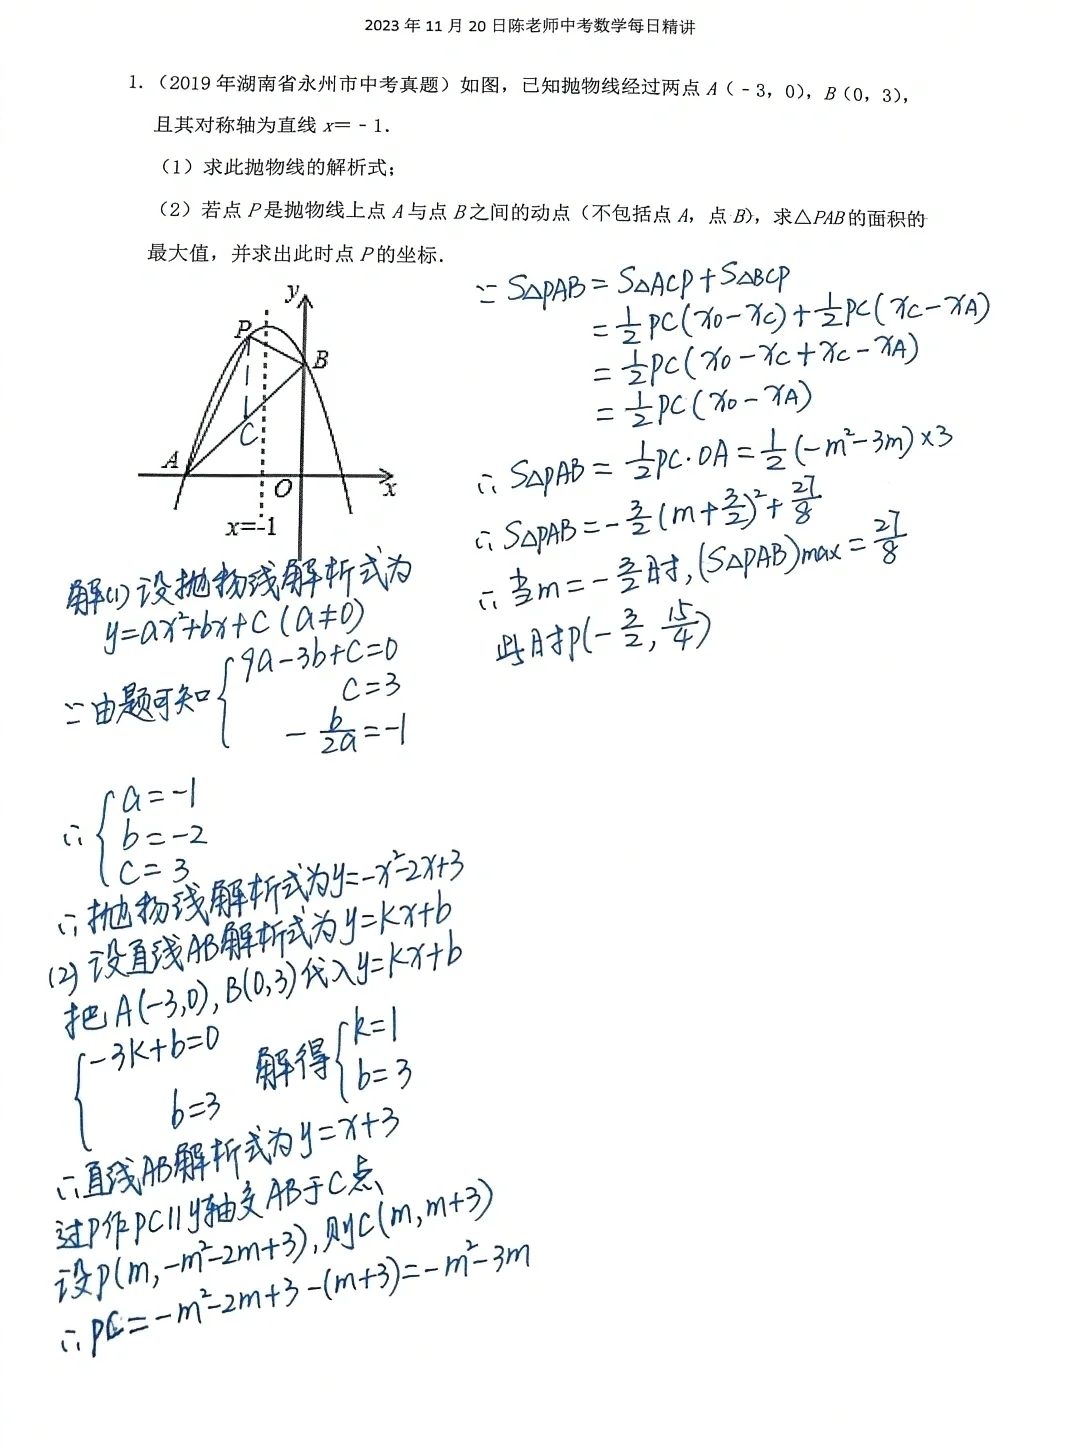 2023 年 11 月 20 日陈老师中考数学每日精讲
1.（2019 年湖南省永州市中考真题）如图，已知抛物线经过两点 A（﹣3，0），B（0，3），
且其对称轴为直线 x＝﹣1．
（1）求此抛物线的解析式；
（2）若点 P 是抛物线上点 A 与点 B 之间的动点（不包括点 A，点 B），求△PAB 的面积的
最大值，并求出此时点 P 的坐标．
y
P
B
C
A
O
x
x=-1
解(1)设抛物线解析式为
y=ax²+bx+c(a≠0)
∵由题可知{9a-3b+c=0
c=3
-b/2a=-1
∴{a=-1
b=-2
c=3
∴抛物线解析式为y=-x²-2x+3
(2)设直线AB解析式为y=kx+b
把A(-3,0),B(0,3)代入y=kx+b
{-3k+b=0
b=3
解得{k=1
b=3
∴直线AB解析式为y=x+3
过P作PC∥y轴交AB于C点
设P(m,-m²-2m+3),则C(m,m+3)
∴PC=-m²-2m+3-(m+3)=-m²-3m
∵S△PAB=S△ACP+S△BCP
=1/2PC(x0-xC)+1/2PC(xC-xA)
=1/2PC(x0-xC+xC-xA)
=1/2PC(x0-xA)
∴S△PAB=1/2PC·OA=1/2(-m²-3m)×3
∴S△PAB=-3/2(m+3/2)²+27/8
∴当m=-3/2时,(S△PAB)max=27/8
此时P(-3/2,15/4)